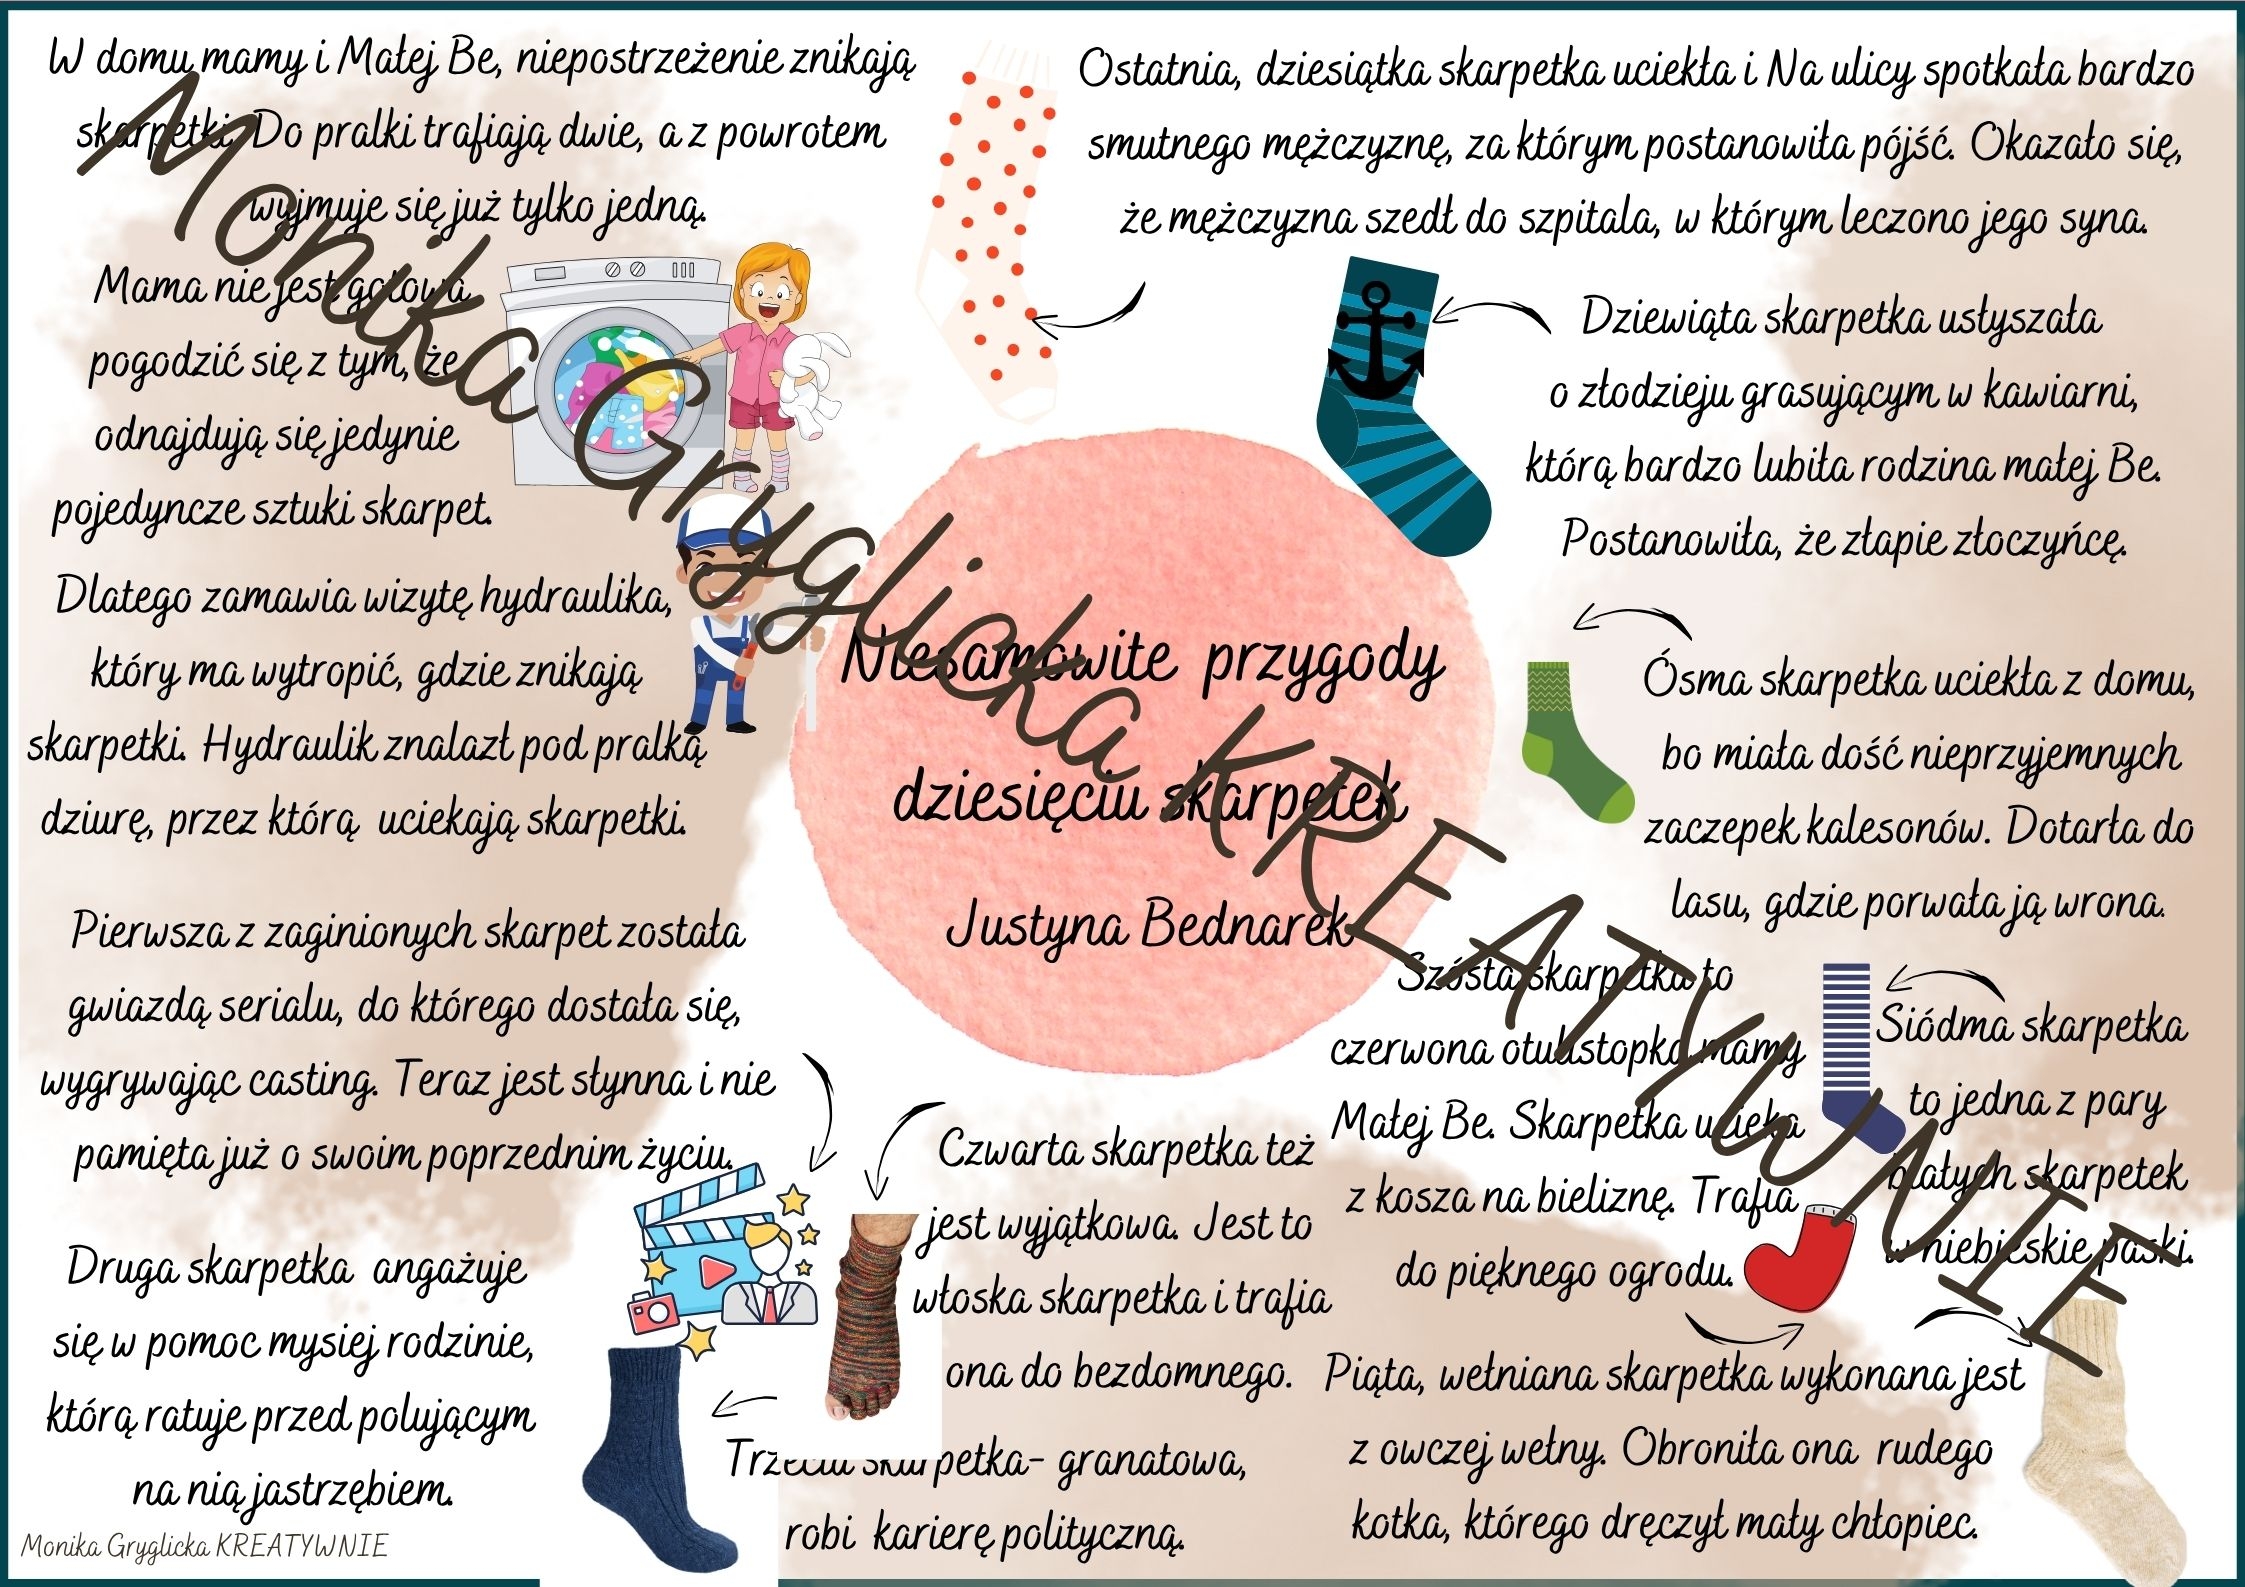 W domu mamy i Małej Be, niepostrzeżenie znikają
skarpetki. Do pralki trafiają dwie, a z powrotem
wyjmuje się już tylko jedną.
Mama nie jest gotowa
pogodzić się z tym, że
odnajdują się jedynie
pojedyncze sztuki skarpet.
Dlatego zamawia wizytę hydraulika,
który ma wytropić, gdzie znikają
skarpetki. Hydraulik znalazł pod pralką
dziurę, przez którą uciekają skarpetki.
Pierwsza z zaginionych skarpet została
gwiazdą serialu, do którego dostała się,
wygrywając casting. Teraz jest słynna i nie
pamięta już o swoim poprzednim życiu.
Druga skarpetka angażuje
się w pomoc mysiej rodzinie,
którą ratuje przed polującym
na nią jastrzębiem.
Trzecia skarpetka- granatowa,
robi karierę polityczną.
Czwarta skarpetka też
jest wyjątkowa. Jest to
włoska skarpetka i trafia
ona do bezdomnego.
Piąta, wełniana skarpetka wykonana jest
z owczej wełny. Obroniła ona rudego
kotka, którego dręczył mały chłopiec.
Szósta skarpetka to
czerwona otulistopka mamy
Małej Be. Skarpetka ucieka
z kosza na bieliznę. Trafia
do pięknego ogrodu.
Siódma skarpetka
to jedna z pary
białych skarpetek
w niebieskie paski.
Ósma skarpetka uciekła z domu,
bo miała dość nieprzyjemnych
zaczepek kalesonów. Dotarła do
lasu, gdzie porwała ją wrona.
Dziewiąta skarpetka usłyszała
o złodzieju grasującym w kawiarni,
którą bardzo lubiła rodzina małej Be.
Postanowiła, że złapie złoczyńcę.
Ostatnia, dziesiątka skarpetka uciekła i Na ulicy spotkała bardzo
smutnego mężczyznę, za którym postanowiła pójść. Okazało się,
że mężczyzna szedł do szpitala, w którym leczono jego syna.
Niesamowite przygody
dziesięciu skarpetek
Justyna Bednarek
Monika Gryglicka KREATYWNIE
Monika Gryglicka KREATYWNIE